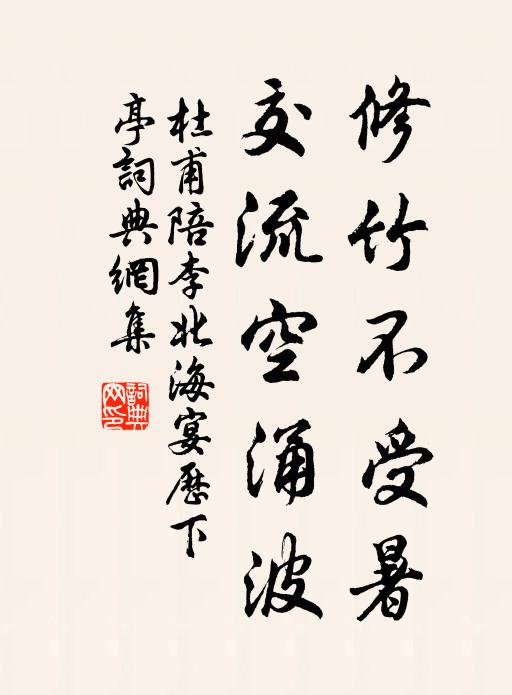 修竹不受暑
交流空涌波
杜甫陪李北海宴歷下
亭詞典網集
詞典
網印